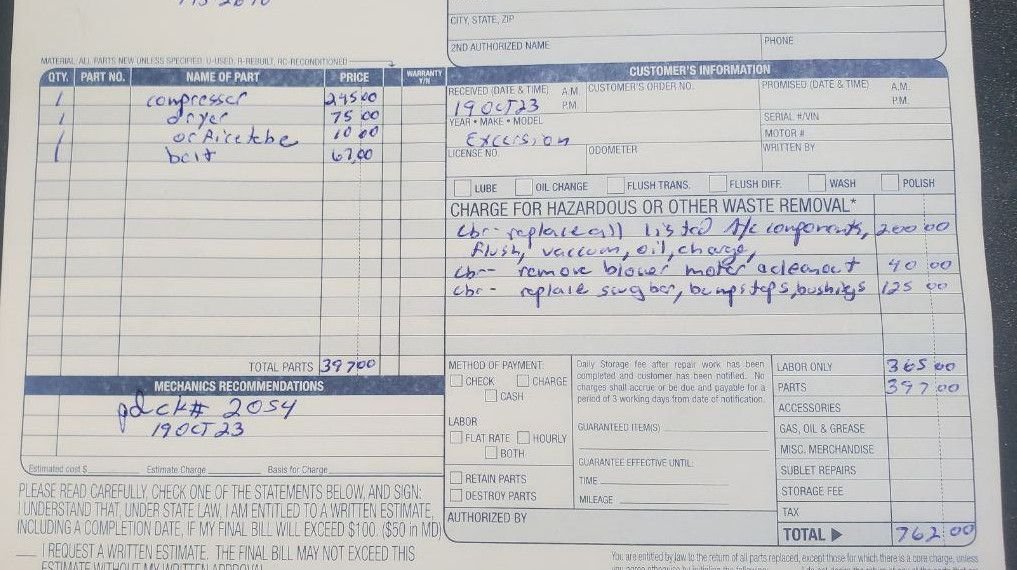 CITY, STATE, ZIP
2ND AUTHORIZED NAME
PHONE
MATERIAL: ALL PARTS NEW UNLESS SPECIFIED: U-USED, R-REBUILT, RC-RECONDITIONED
QTY. PART NO. NAME OF PART PRICE WARRANTY Y/N
1 compressor 245 00
1 dryer 75 00
1 orficetube 10 00
1 belt 67.00
TOTAL PARTS 397 00
MECHANICS RECOMMENDATIONS
pd ck# 2054
19 OCT 23
Estimated cost $ Estimate Charge Basis for Charge
PLEASE READ CAREFULLY, CHECK ONE OF THE STATEMENTS BELOW, AND SIGN:
I UNDERSTAND THAT, UNDER STATE LAW, I AM ENTITLED TO A WRITTEN ESTIMATE,
INCLUDING A COMPLETION DATE, IF MY FINAL BILL WILL EXCEED $100. ($50 in MD)
I REQUEST A WRITTEN ESTIMATE. THE FINAL BILL MAY NOT EXCEED THIS
ESTIMATE WITHOUT MY WRITTEN APPROVAL
CUSTOMER'S INFORMATION
RECEIVED (DATE & TIME) A.M. P.M.
19 OCT 23
CUSTOMER'S ORDER NO.
PROMISED (DATE & TIME) A.M. P.M.
YEAR • MAKE • MODEL
Excursion
SERIAL #/VIN
MOTOR #
LICENSE NO.
ODOMETER
WRITTEN BY
LUBE OIL CHANGE FLUSH TRANS. FLUSH DIFF. WASH POLISH
CHARGE FOR HAZARDOUS OR OTHER WASTE REMOVAL*
Lbr - replace all listed A/c components, 200 00
flush, vaccum, oil, charge,
Lbr - remove blower motor & cleanout 40 00
Lbr - replace swg bar, bumpstops, bushigs 125 00
METHOD OF PAYMENT:
CHECK CHARGE
CASH
LABOR
FLAT RATE HOURLY
BOTH
RETAIN PARTS
DESTROY PARTS
AUTHORIZED BY
Daily Storage fee after repair work has been
completed and customer has been notified. No
charges shall accrue or be due and payable for a
period of 3 working days from date of notification.
GUARANTEED ITEM(S)
GUARANTEE EFFECTIVE UNTIL:
TIME
MILEAGE
LABOR ONLY 365 00
PARTS 397 00
ACCESSORIES
GAS, OIL & GREASE
MISC. MERCHANDISE
SUBLET REPAIRS
STORAGE FEE
TAX
TOTAL ▶ 762 00
You are entitled by law to the return of all parts replaced, except those for which there is a core charge, unless